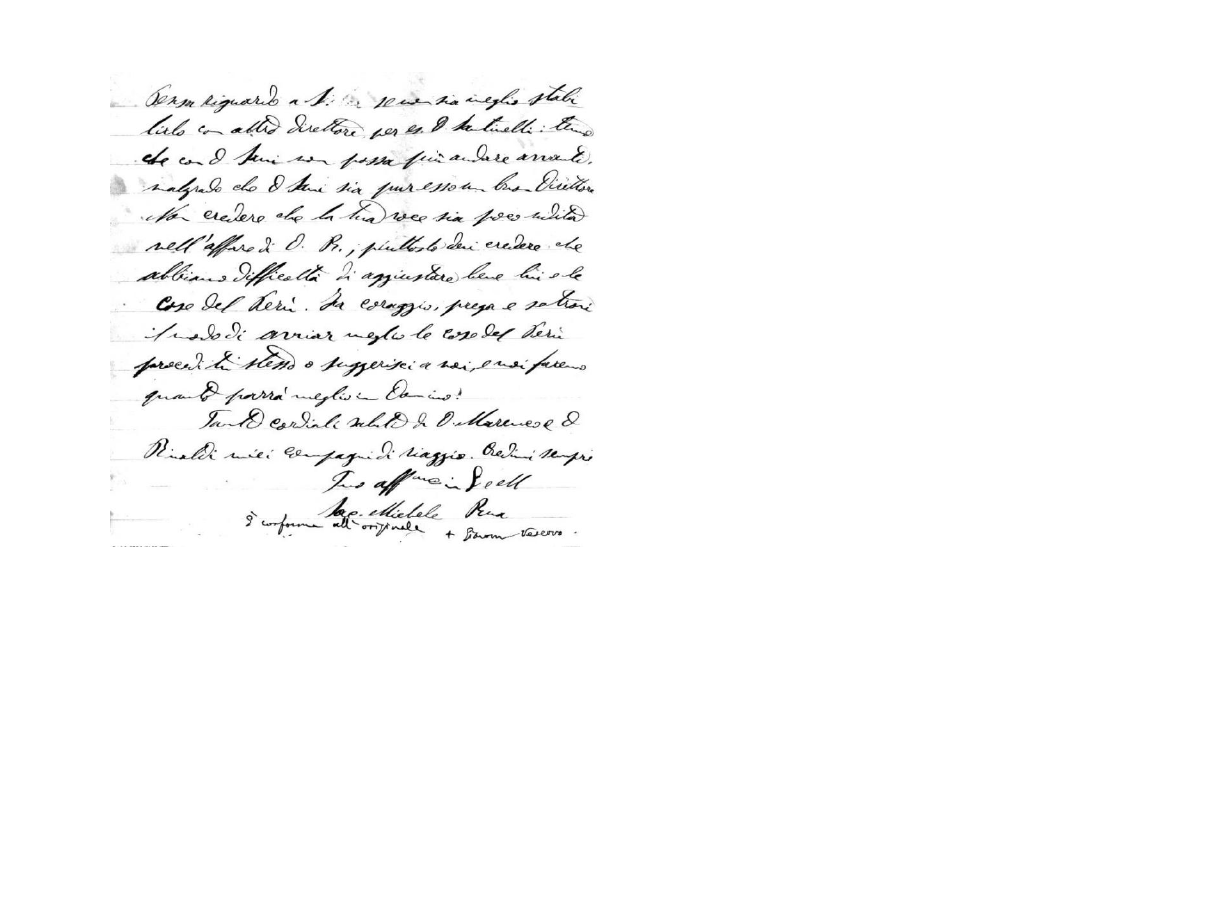 Pensa riguardo a S. se non sia meglio stabi
lirlo con altro direttore per es. D Santinelli: temo
che con D Sani non possa più andare avanti.
malgrado che D Sani sia pur esso un buon Direttore
Non credere che la tua voce sia poco udita
nell'affare di D. Ri.; piuttosto devi credere che
abbiamo difficoltà di aggiustare bene lui e le
cose del Perù. Fa coraggio, prega e se trovi
il modo di avviar meglio le cose del Perù
procedi tu stesso o suggerisci a noi, e noi faremo
quanto parrà meglio in Domino!
Tanti cordiali saluti da D. Marenco e D
Rinaldi miei compagni di viaggio. Credimi sempre
Tuo aff in G e M
Sac. Michele Rua
È conforme all'originale + Vescovo.